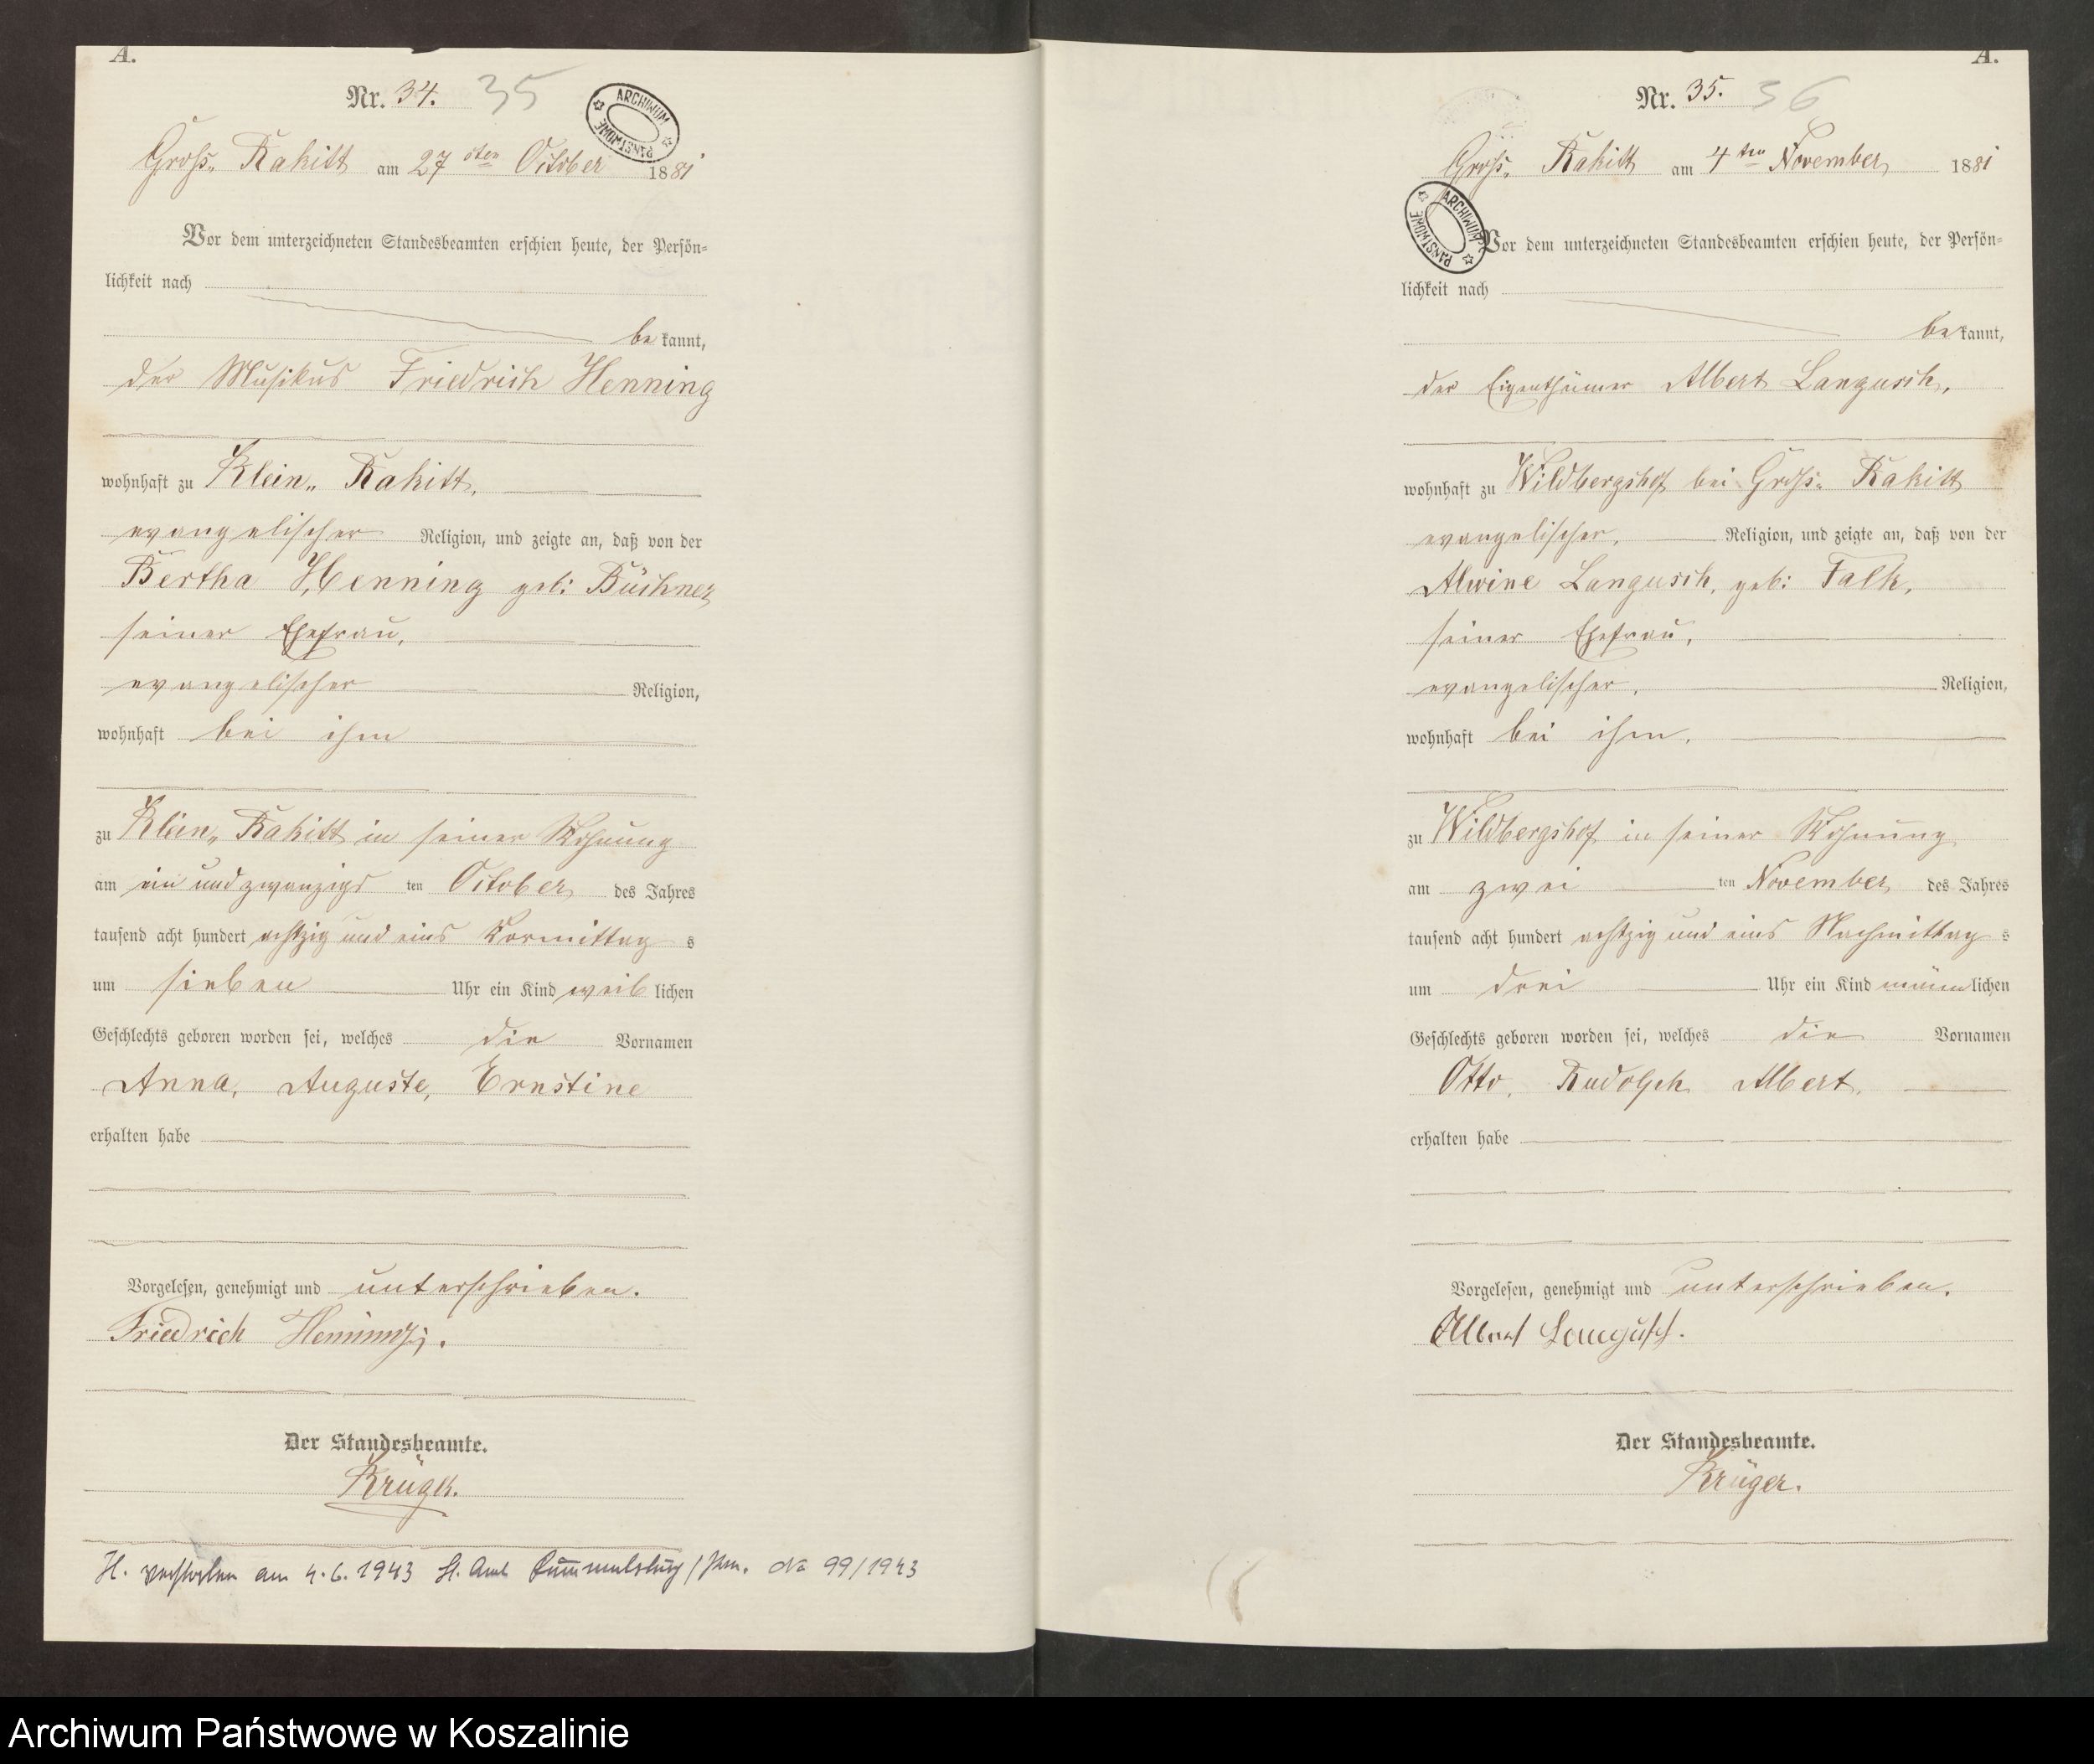 A.
Nr. 34. 35
ARCHIWUM PAŃSTWOWE
Groß„ Rakitt am 27sten October 1881
Vor dem unterzeichneten Standesbeamten erschien heute, der Persön=
lichkeit nach
be kannt,
der Musikus Friedrich Henning
wohnhaft zu Klein„ Rakitt,
evangelischer Religion, und zeigte an, daß von der
Bertha Henning geb: Büchner
seiner Ehefrau,
evangelischer Religion,
wohnhaft bei ihm
zu Klein„ Rakitt in seiner Wohnung
am ein und zwanzigs ten October des Jahres
tausend acht hundert achtzig und eins Vormittag s
um sieben Uhr ein Kind weib lichen
Geschlechts geboren worden sei, welches die Vornamen
Anna, Auguste, Ernstine
erhalten habe
Vorgelesen, genehmigt und unterschrieben.
Friedrich Henning.
Der Standesbeamte.
Krüger.
H. verstorben am 4.6.1943 St. Amt Rummelsburg/Pom. No 99/1943
A.
Nr. 35. 36
Groß„ Rakitt am 4ten November 1881
ARCHIWUM PAŃSTWOWE
Vor dem unterzeichneten Standesbeamten erschien heute, der Persön=
lichkeit nach
be kannt,
der Eigenthümer Albert Langusch,
wohnhaft zu Wildbergshof bei Groß„ Rakitt
evangelischer, Religion, und zeigte an, daß von der
Alwine Langusch, geb: Falk,
seiner Ehefrau,
evangelischer, Religion,
wohnhaft bei ihm,
zu Wildbergshof in seiner Wohnung
am zwei ten November des Jahres
tausend acht hundert achtzig und eins Nachmittag s
um drei Uhr ein Kind männ lichen
Geschlechts geboren worden sei, welches die Vornamen
Otto, Rudolph Albert,
erhalten habe
Vorgelesen, genehmigt und unterschrieben.
Albert Langusch.
Der Standesbeamte.
Krüger.
Archiwum Państwowe w Koszalinie